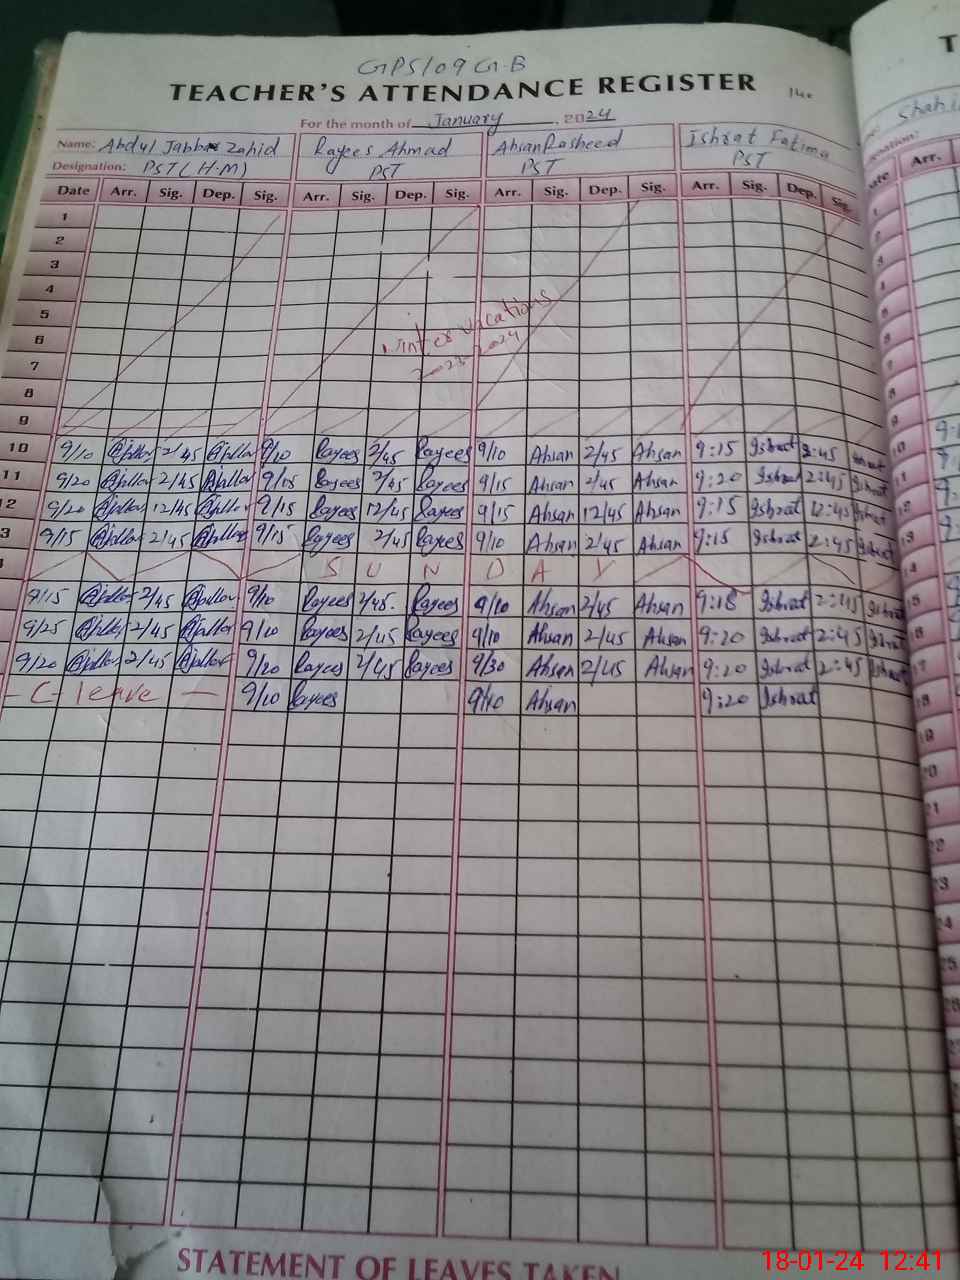 GPS/09 G.B
TEACHER'S ATTENDANCE REGISTER
For the month of January, 2024
Name: Abdul Jabbar Zahid Rayees Ahmad Ahsan Rasheed Ishrat Fatima
Designation: PST (H.M) PST PST PST
Date Arr. Sig. Dep. Sig. Arr. Sig. Dep. Sig. Arr. Sig. Dep. Sig. Arr. Sig. Dep. Sig.
1
2
3
4
5
6
7
8
9
Winter vacations
2023-2024
10 9/10 2/45 9/10 Rayees 2/45 Rayees 9/10 Ahsan 2/45 Ahsan 9:15 Ishrat 2:45 Ishrat
11 9/20 2/45 9/15 Rayees 2/45 Rayees 9/15 Ahsan 2/45 Ahsan 9:20 Ishrat 2:45 Ishrat
12 9/20 12/45 9/15 Rayees 12/45 Rayees 9/15 Ahsan 12/45 Ahsan 9:15 Ishrat 12:45 Ishrat
3 9/15 2/45 9/15 Rayees 2/45 Rayees 9/10 Ahsan 2/45 Ahsan 9:15 Ishrat 2:45 Ishrat
S U N D A Y
9/15 2/45 9/10 Rayees 2/45. Rayees 9/10 Ahsan 2/45 Ahsan 9:18 Ishrat 2:45 Ishrat
9/25 2/45 9/10 Rayees 2/45 Rayees 9/10 Ahsan 2/45 Ahsan 9:20 Ishrat 2:45 Ishrat
9/20 2/45 9/20 Rayees 2/45 Rayees 9/30 Ahsan 2/45 Ahsan 9:20 Ishrat 2:45 Ishrat
- C- leave - 9/10 Rayees 9/10 Ahsan 9:20 Ishrat
STATEMENT OF LEAVES TAKEN
18-01-24 12:41